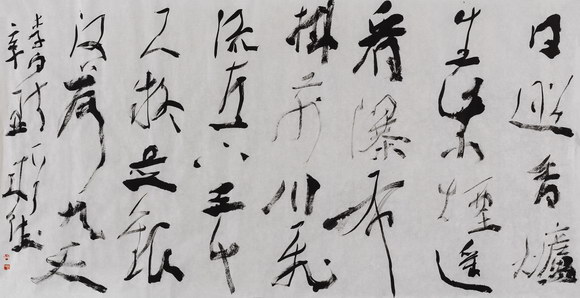 日照香爐
生紫煙遥
看瀑布
掛前川飛
流直下三千
尺疑是銀
河落九天
李白詩
辛丑